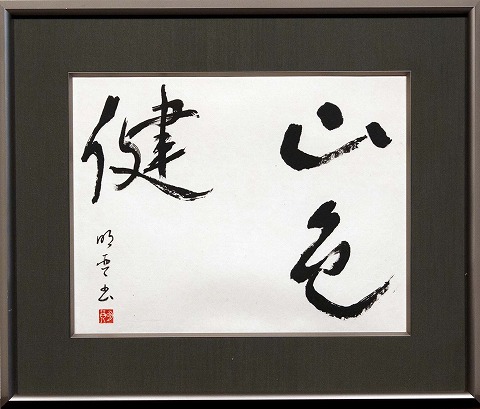 山色
健
明雲書